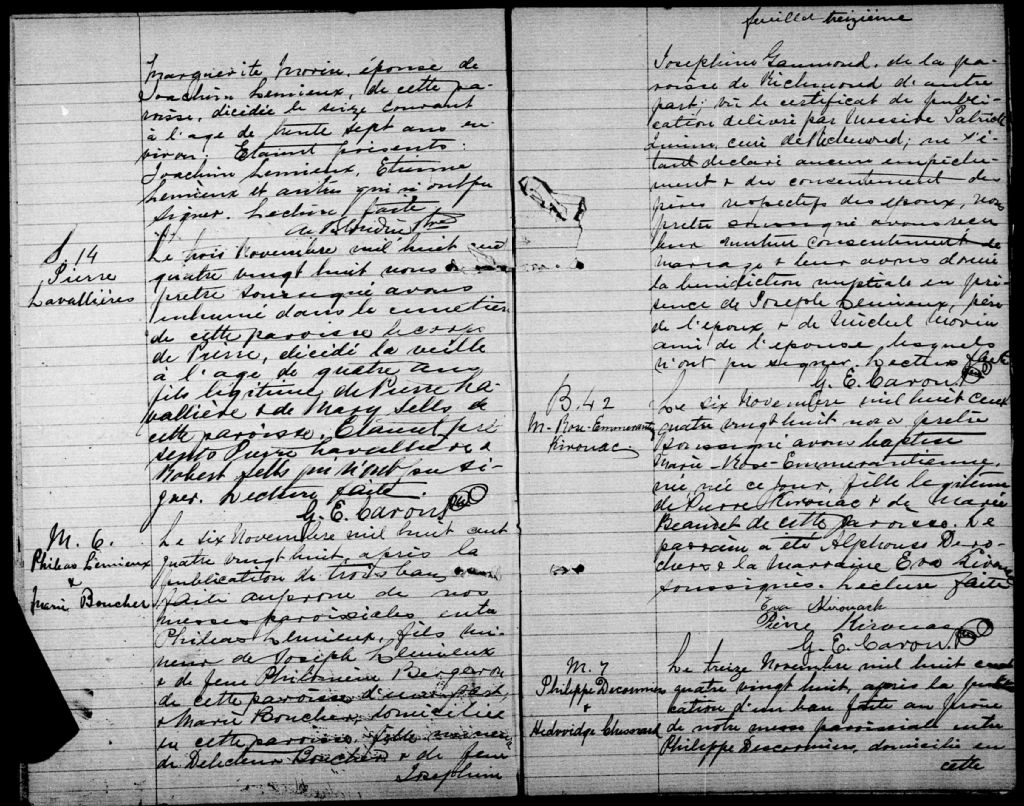 Marguerite Morin, épouse de
Joachim Lemieux, de cette pa-
roisse, décidée le seize courant
à l'age de trente sept ans en-
viron. Etaient présents:
Joachim Lemieux, Etienne
Lemieux et autres qui n'ont pu
signer. Lecture faite
S. 14
Pierre
Lavallières
Le trois Novembre mil huit cent
quatre vingt huit nous
prêtre soussigné avons
inhumé dans le cimetière
de cette paroisse le corps
de Pierre, décidé la veille
à l'age de quatre ans
fils légitime de Pierre La-
vallière & de Mary Sells de
cette paroisse. Etaient pré
sents Pierre Lavallière &
Robert Sells qui n'ont pu si-
gner. Lecture faite.
G. E. Caron Ptre
M. 6.
Philias Lemieux
&
Marie Boucher
Le six Novembre mil huit cent
quatre vingt huit, après la
publication de trois bans
faite au prone de nos
messes paroissiales, entre
Philias Lemieux, fils mi-
neur de Joseph Lemieux
& de feue Philomène Bergeron
de cette paroisse d'une part
& Marie Boucher, domiciliée
en cette paroisse fille mineure
de Boucher & de feue
Josephine
feuillet treizième
Josephine Gaumond, de la pa-
roisse de Richmond d'autre
part; vu le certificat de publi-
cation délivré par Messire Patrick
Quinn, curé de Richmond; ne s'é-
tant déclaré aucun empêche-
ment & du consentement des
pères respectifs des époux, nous
prêtre soussigné avons reçu
leur mutuel consentement de
mariage & leur avons donné
la bénédiction nuptiale en pré-
sence de Joseph Lemieux, père
de l'époux, & de Michel Morin
ami de l'épouse lesquels
n'ont pu signer. Lecture faite
G. E. Caron Ptre
B. 42
M-Rose-Emmerantienne
Kirouac
Le six Novembre mil huit cent
quatre vingt huit nous prêtre
soussigné avons baptisé
Marie-Rose-Emmerantienne,
née ce jour, fille légitime
de Pierre Kirouac & de Marie
Beaudet de cette paroisse. Le
parrain a été Alphonse Dero-
chers & la marraine Eva Kirouac
soussignés. Lecture faite
Eva Kirouack
Pierre Kirouac
G. E. Caron Ptre
M. 7
Philippe Descormiers
&
Le treize Novembre mil huit cent
quatre vingt huit, après la publi
cation d'un ban faite au prone
de notre messe paroissiale entre
Philippe Descormiers, domicilié en
cette